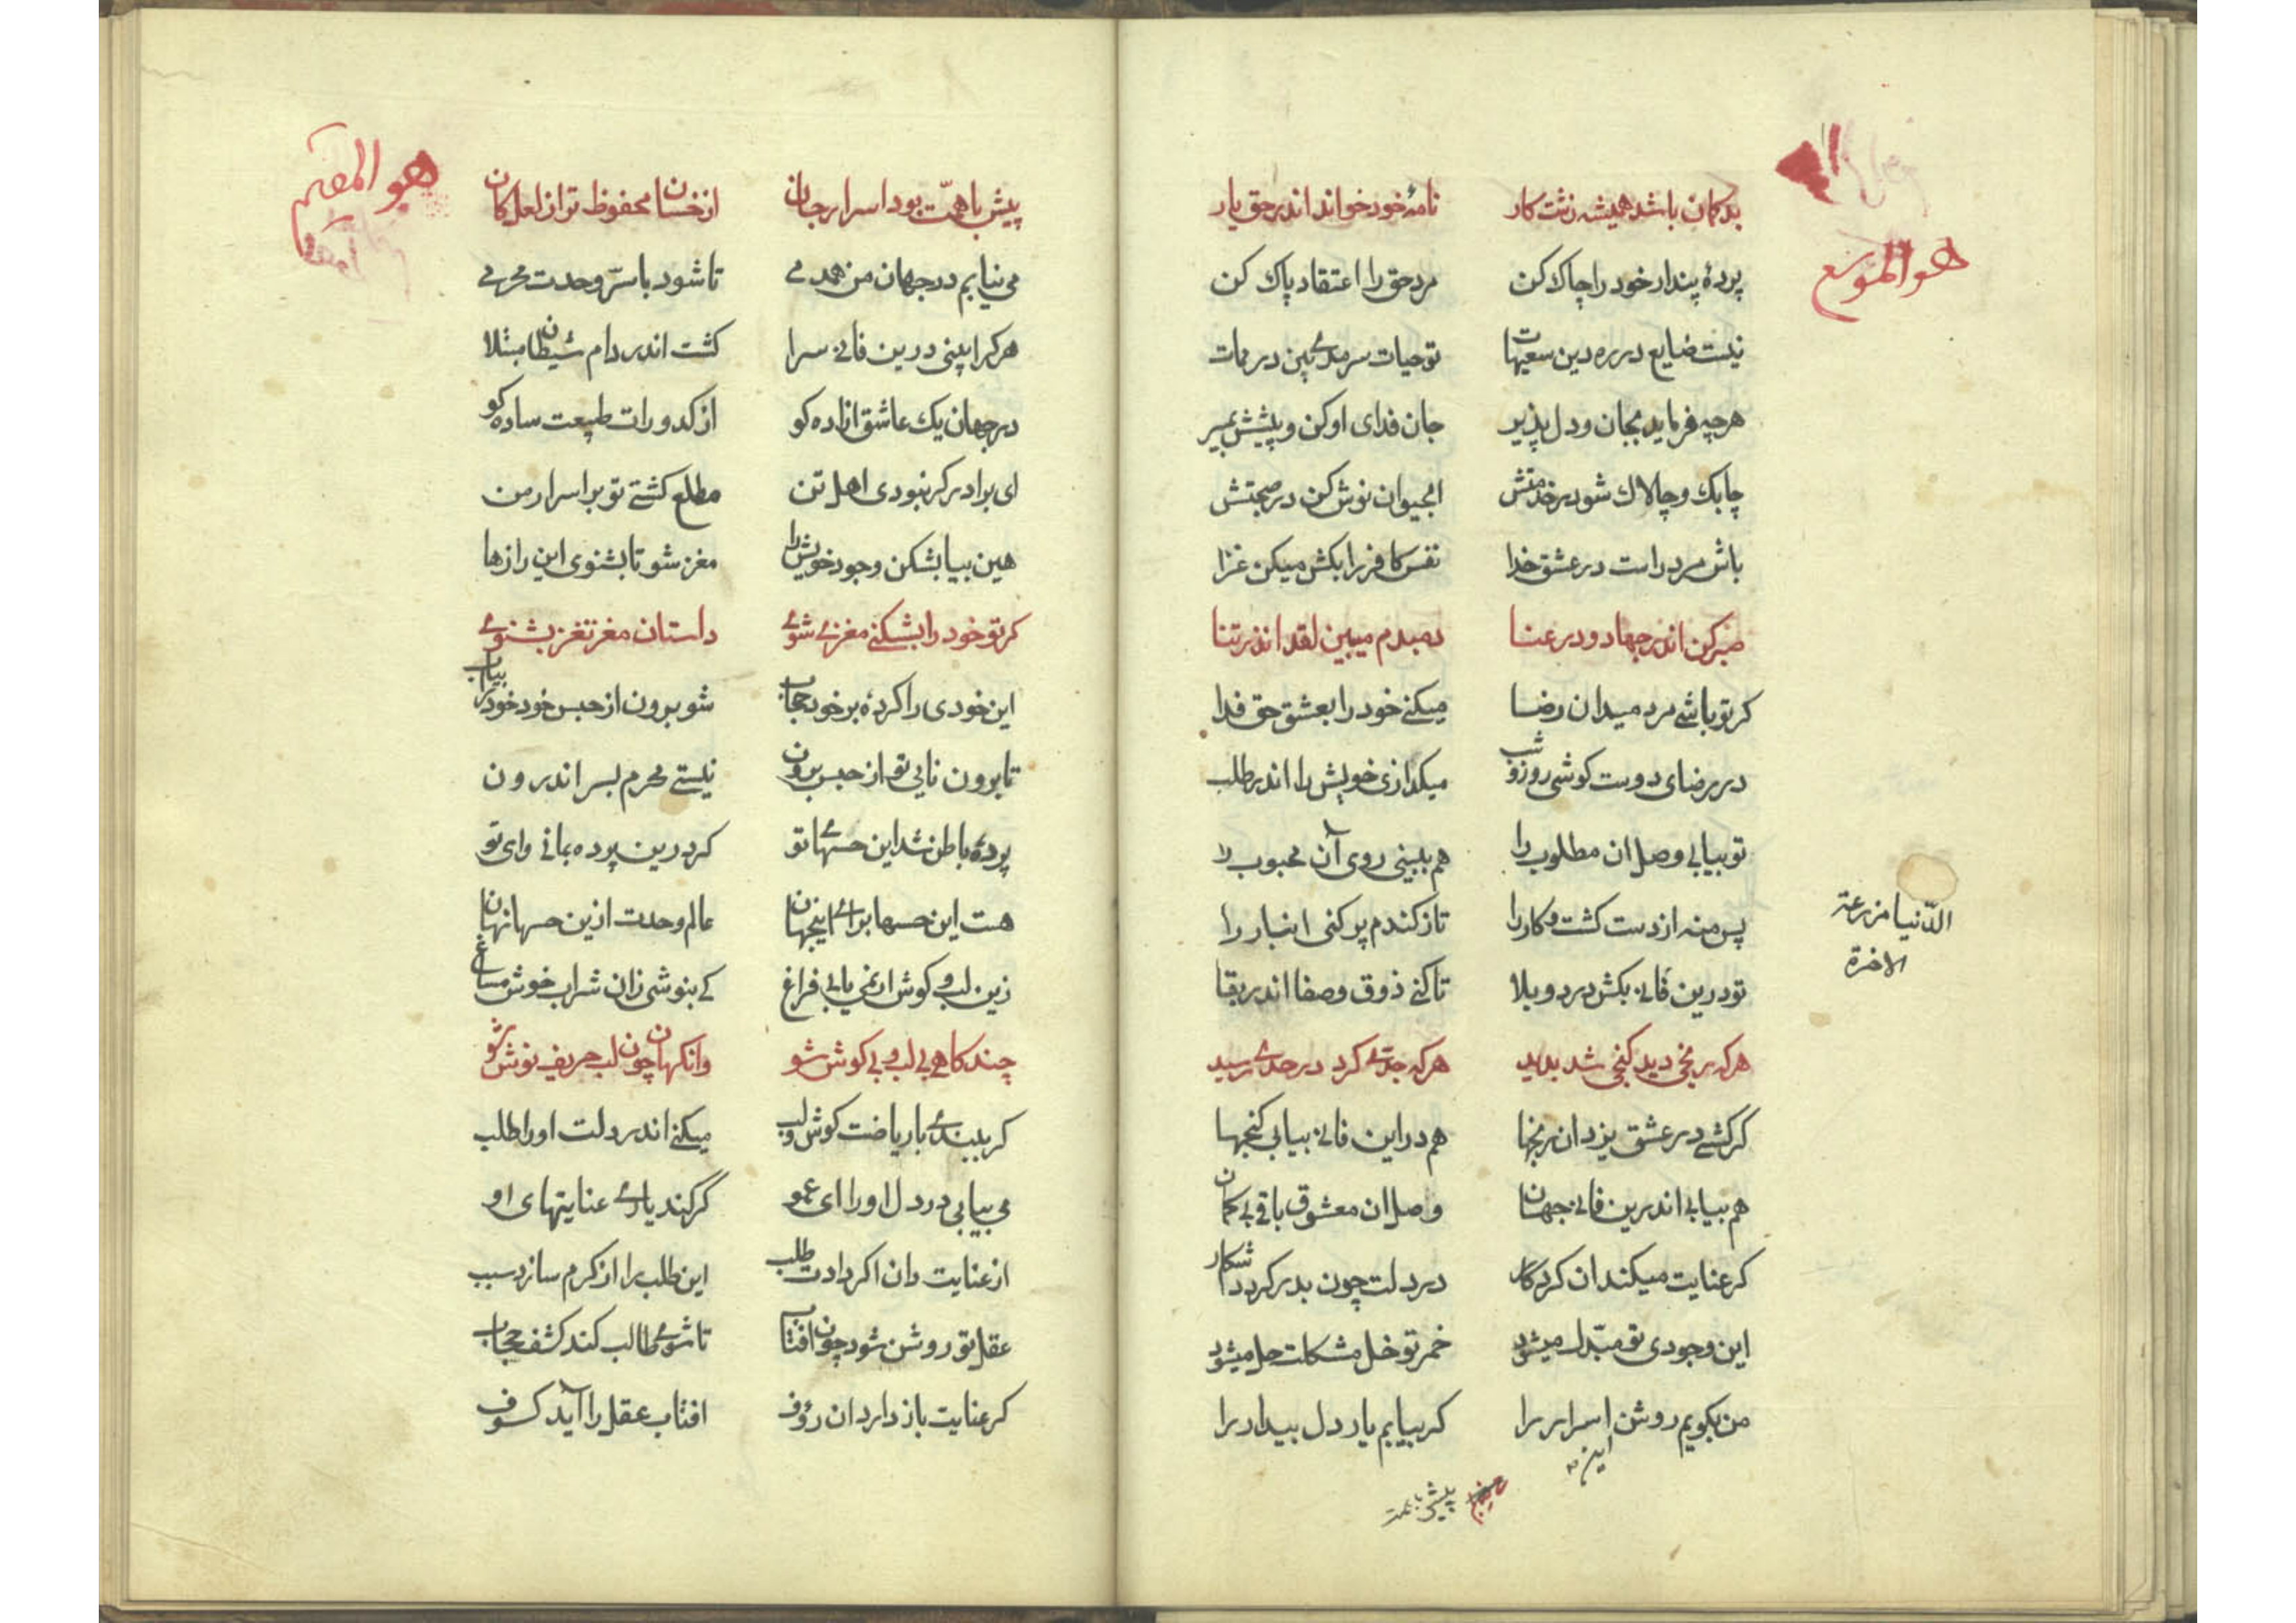 هو الموسع
بدکمان باشد همیشه زشت کار نامهٔ خود خواند اندر حق یار
پردهٔ پندار خود را چاک کن مرد حق را اعتقاد پاک کن
نیست ضایع در ره دین سعیهات تو حیات سرمدی بین در ممات
هرچه فرماید بجان و دل پذیر جان فدای او کن و پیشش بمیر
چابک و چالاک شو در خدمتش ابحیوان نوش کن در صحبتش
باش مرد راست در عشق خدا نفس کافر را بکش میکن غزا
صبر کن اندر جهاد و در عنا دمبدم میبین لقد اندر تنا
کر تو باشی مرد میدان رضا میکنی خود را بعشق حق فدا
در رضای دوست کوشی روز و شب میکدازی خویش را اندر طلب
تو بیابی وصل ان مطلوب را هم ببینی روی آن محبوب را
پس منه از دست کشت و کار را تا ز کندم پر کنی انبار را
الدّنیا مزرعة
الاخرة
تو درین فانی بکش درد و بلا تا کنی ذوق و صفا اندر بقا
هرکه رنجی دید کنجی شد پدید هرکه جدّی کرد در حدی رسید
کر کشی در عشق یزدان رنجها هم در این فانی بیابی کنجها
هم بیابی اندرین فانی جهان وصل ان معشوق باقی بی کمان
کر عنایت میکند ان کردکار در دلت چون بدر کردد اشکار
این وجودی تو مبدّل میشود خمر تو خل مشکلت حل میشود
من بکویم روشن اسرار را کر بیابم یار دل بیدار را
این
پیش با همت
هو المقیم
پیش با همّت بود اسرار جان از خسان محفوظ تر از لعل کان
می نیابم در جهان من همدمی تا شود با سرّ وحدت محرمی
هرکرا بینی درین فانی سرا کشت اندر دام شیطان مبتلا
در جهان یک عاشق ازاده کو از کدورات طبیعت ساده کو
ای برادر کر نبودی اهل تن مطلع کشتی تو بر اسرار من
هین بیا بشکن وجود خویش را مغز شو تا بشنوی این رازها
کر تو خود را بشکنی مغزی شوی داستان مغز نغزی بشنوی
این خودی را کردهٔ بر خود حجاب شو برون از حبس خود خود را بیاب
تا برون نایی تو از حبس برون نیستی محرم بسر اندرون
پردهٔ باطن شد این حسّهای تو کر درین پرده بمانی وای تو
هست این حسها برای اینجهان عالم وحدت ازین حسها نهان
زین لب و کوش ار نمی یابی فراغ کی بنوشی زان شراب خوش مساغ
چند کاهی بی لب و بی کوش شو وانکهان چون لب حریف نوش شو
کر ببندی با ریاضت کوش و لب میکنی اندر دلت او را طلب
می بیابی در دل او را ای عمو گر کند یاری عنایتهای او
از عنایت دان اکر دادت طلب این طلب را از کرم سازد سبب
عقل تو روشن شود چون افتاب تا شوی طالب کند کشف حجاب
کر عنایت باز دارد ان رؤف افتاب عقل را آید کسوف